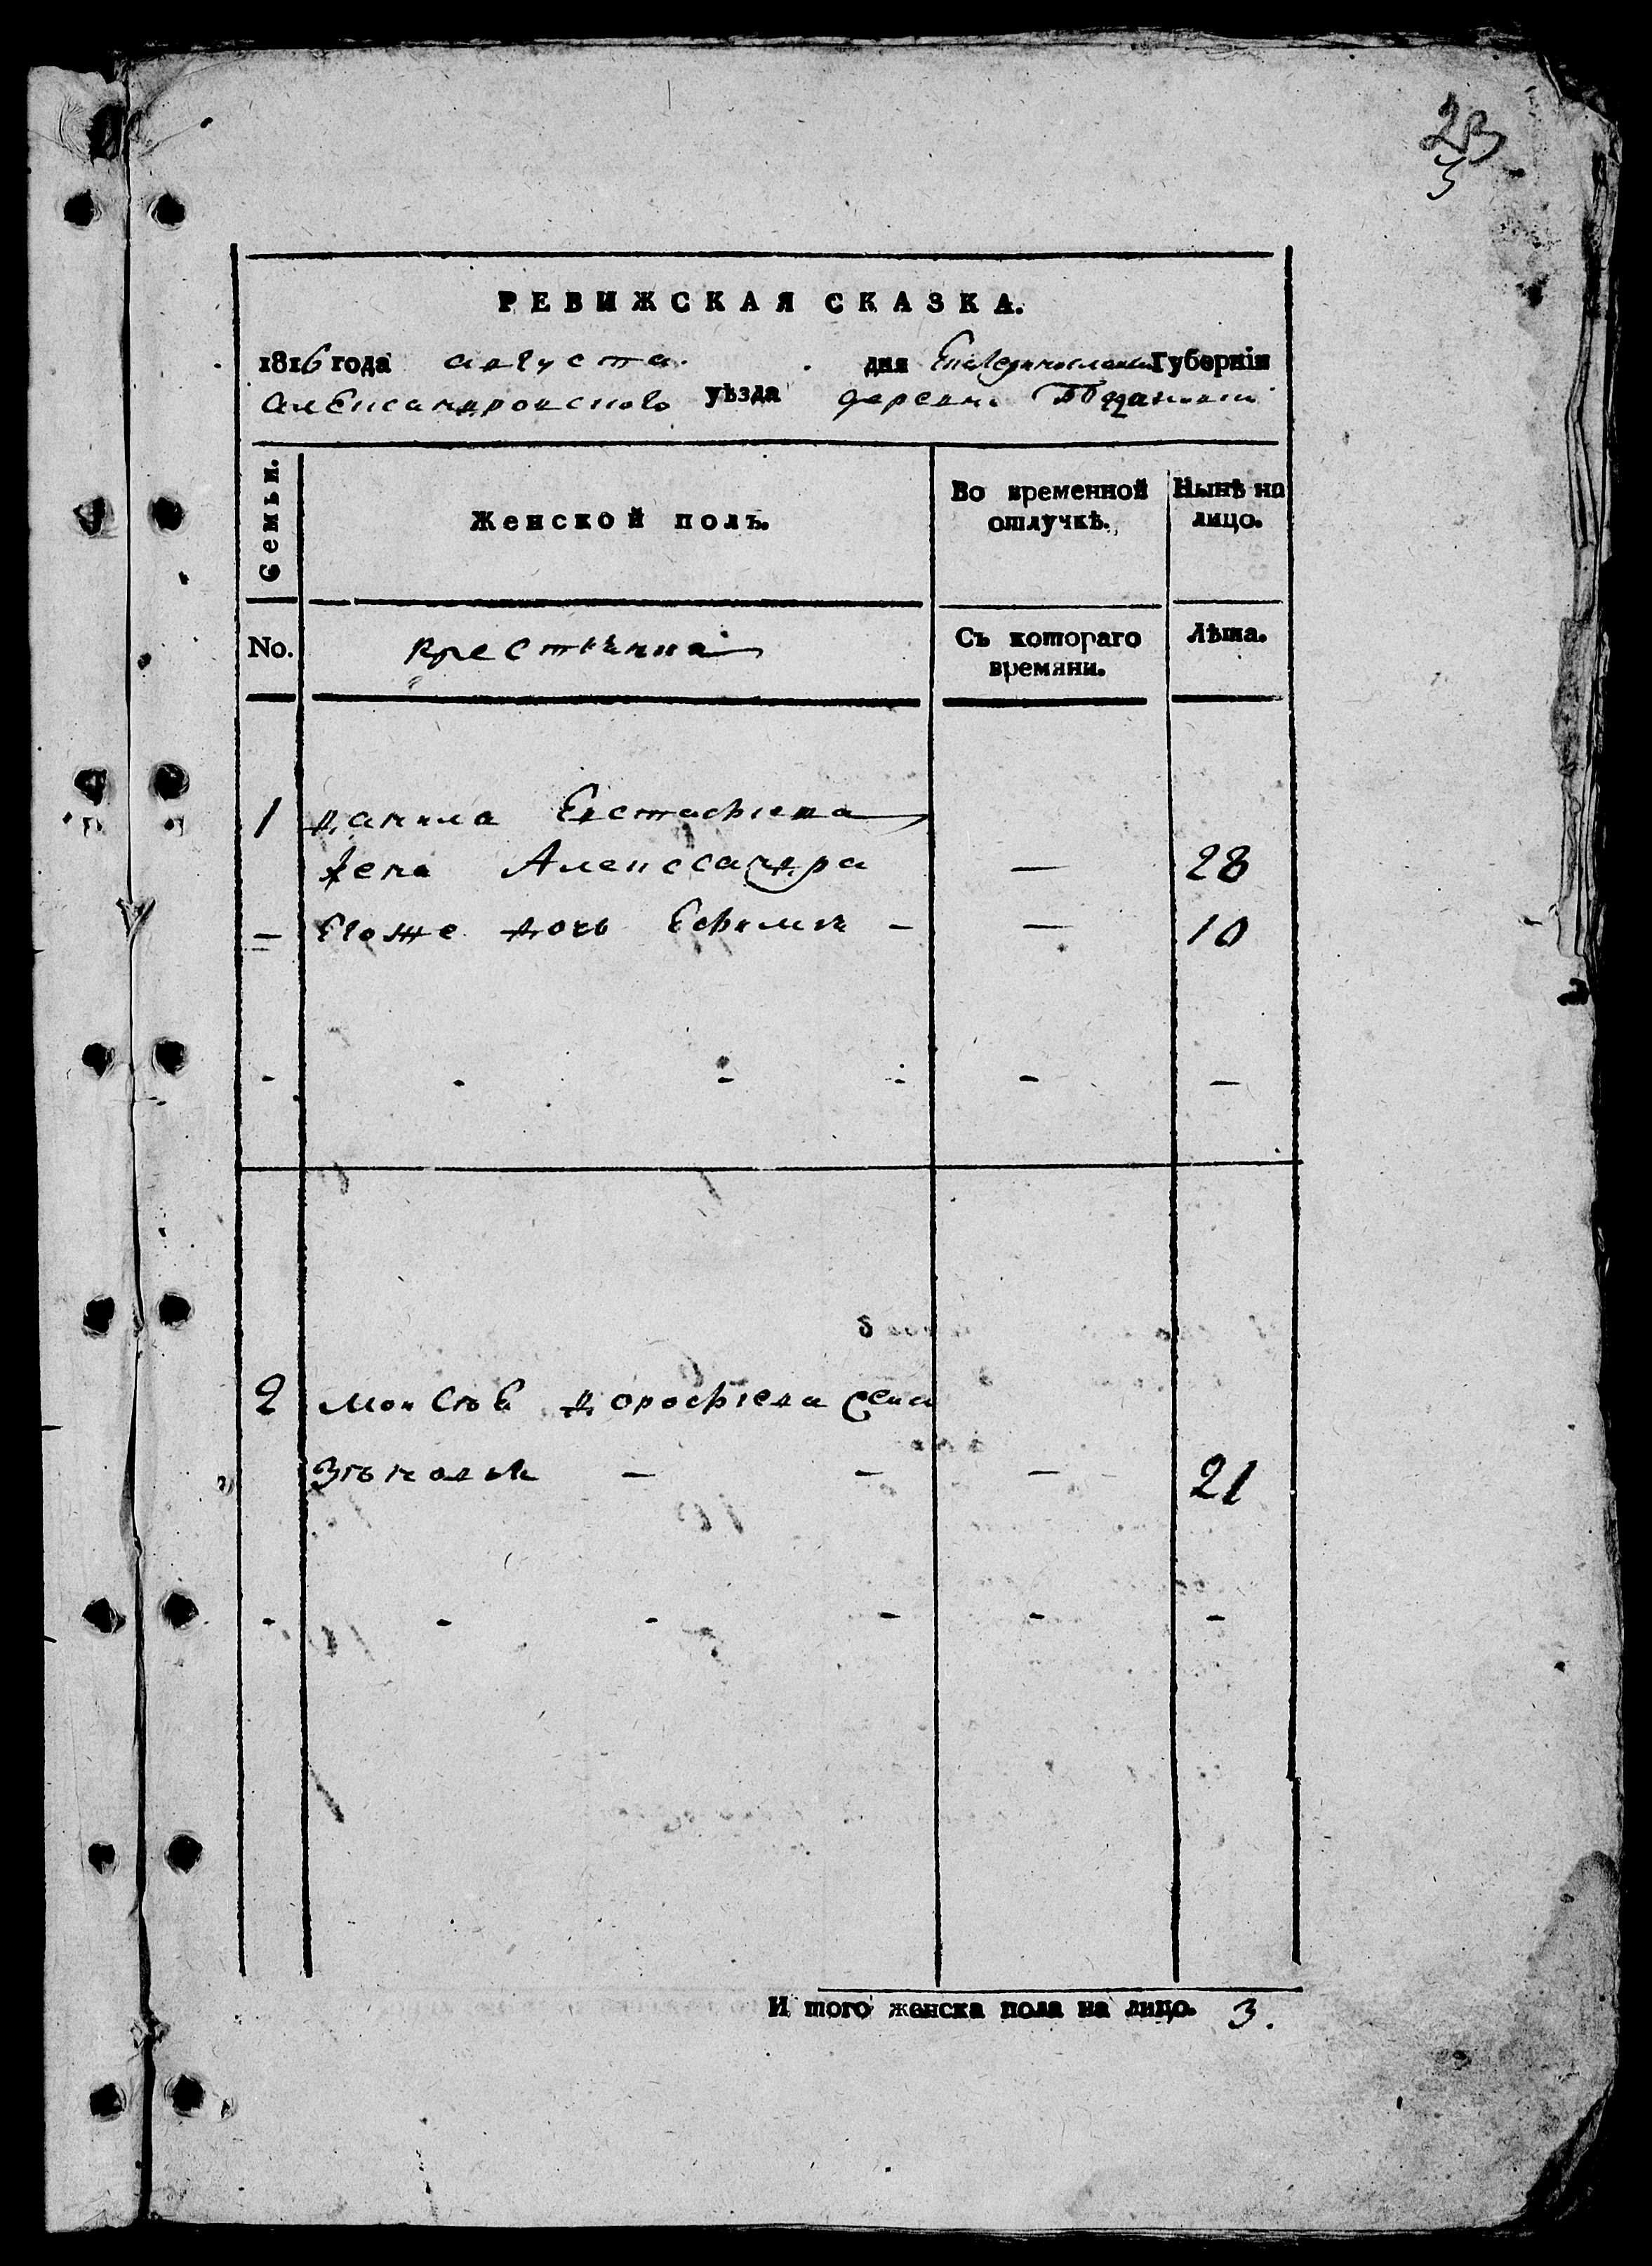 23
5
РЕВИЖСКАЯ СКАЗКА.
1816 года августа дня Екатеринославской Губерніи
Александровского уѣзда деревни
Семьи.
Женской полъ.
Во временной отлучкѣ.
Нынѣ на лицо.
No.
Крестьяна
Съ котораго времяни.
Лѣта.
1 Данила Евстафіева
жена Александра — 28
— Егоже дочь Ефимия — — 10
2 Моисѣя Дорофіева жена
Зѣновья — — — 21
И того женска пола на лицо. 3.